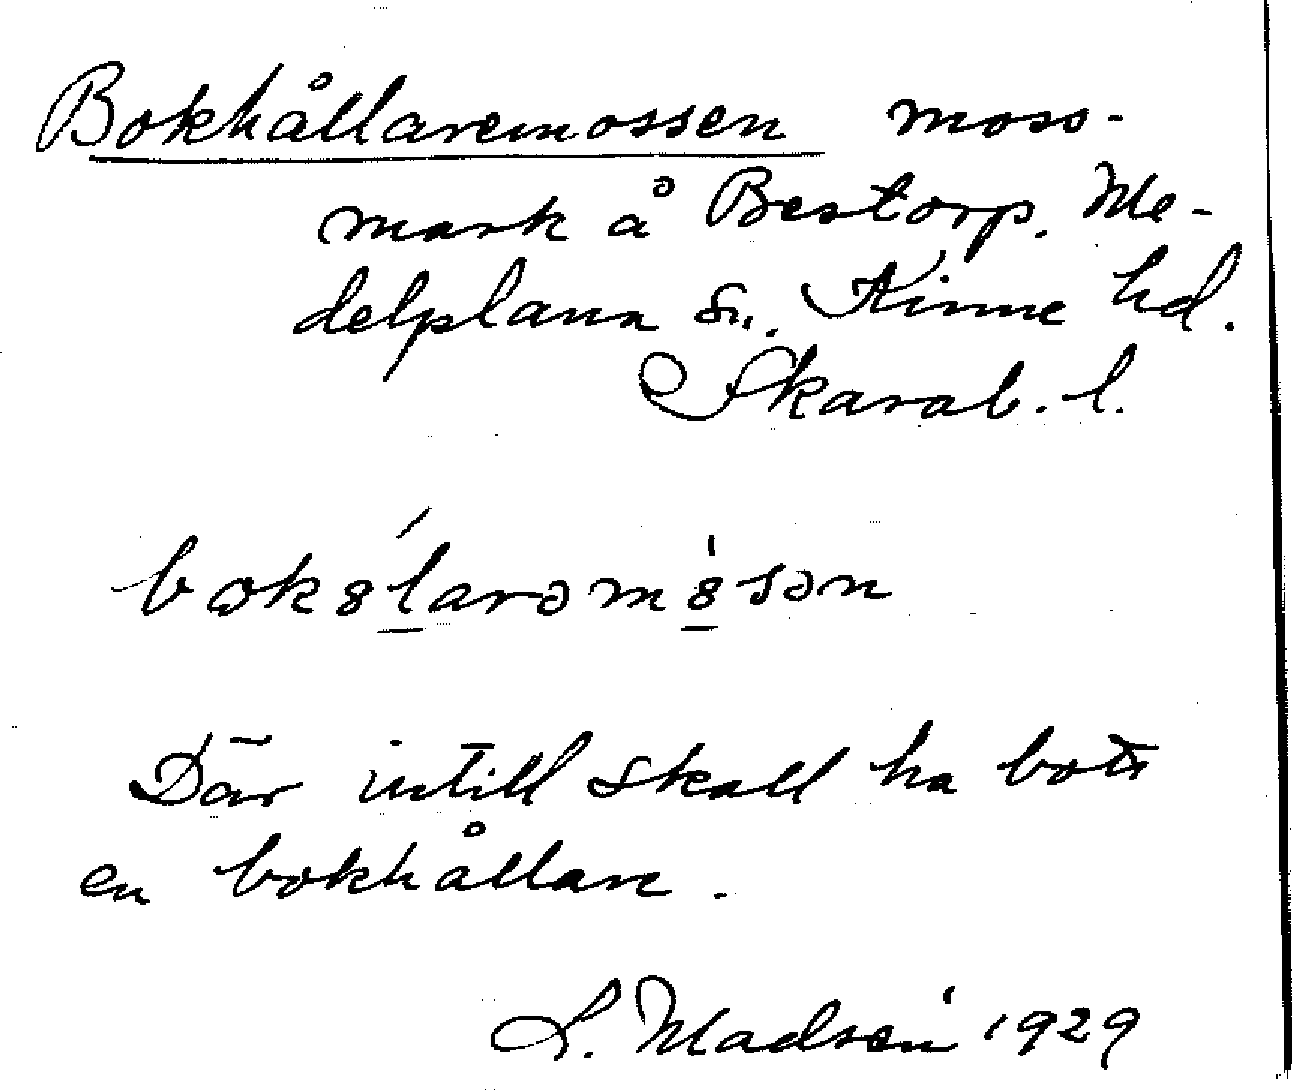 Bokhållaremossen moss-
mark å Bestorp. Me-
delplana sn. Kinne hd.
Skarab. l.
Där intill skall ha bott
en bokhållare.
S. Madsén 1929